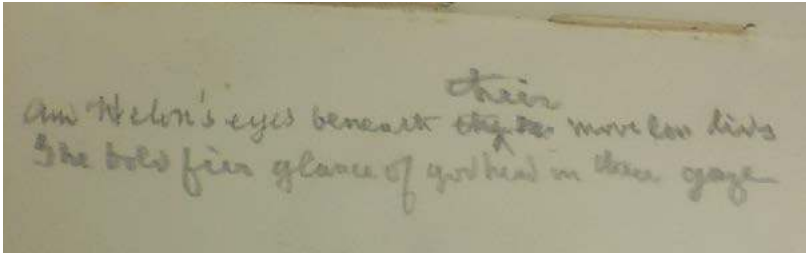 their
and Helen's eyes beneath move
The bold glance of godhead in their gaze